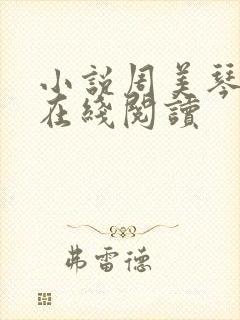 小說周美琴
在綫閱讀
弗雷德